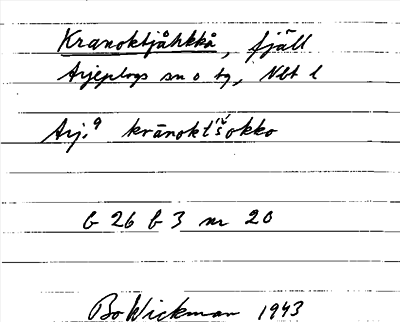 Kranoktjåhkkå, fjäll
Arjeplogs sn o tg, Nbt l
Arj.9 krānokt'š́okko
b 26 b 3 nr 20
Bo Wickman 1943